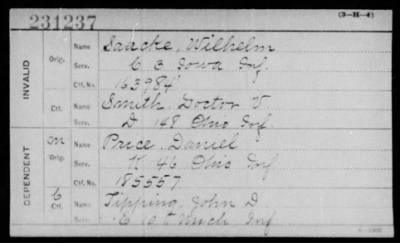 231237
(3-H-4)
INVALID
Orig. Name Saucke, Wilhelm
Serv. C 3 Iowa Inf
Ctf. No. 163984
Ctf. Name Smith, Doctor V.
Serv. D 148 Ohio Inf.
DEPENDENT
m Orig. Name Price, Daniel
Serv. K 46 Ohio Inf
Ctf. No. 185557
C Ctf. Name Tipping, John D.
Serv. E 10 Mich Inf